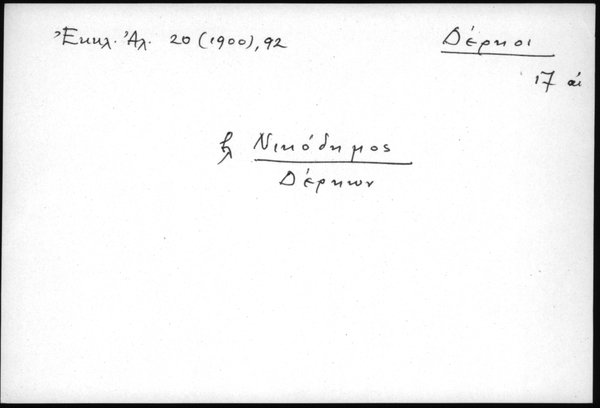 Ἐκκλ. Ἀλ. 20 (1900), 92
Δέρκοι
17 αἰ
βλ Νικόδημος
Δέρκων